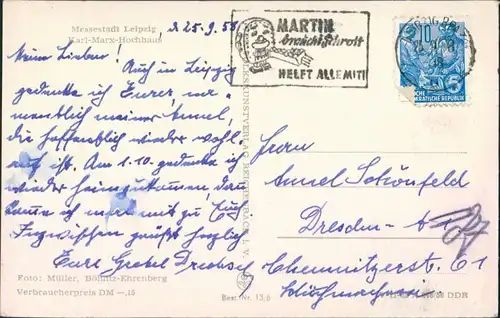 Messestadt Leipzig
Karl-Marx-Hochhaus
d 25.9.58
Meine Lieben!
Auch in Leipzig
gedenke ich Eurer, na-
mentlich meiner Annel,
die hoffentlich wieder wohl
auf ist. Am 1.10. gedenke ich
wieder heimzukommen, dann
komme ich mal mit zu Euch
Inzwischen grüßt herzlich
Eure Gretel
Foto: Müller, Böhlitz-Ehrenberg
Verbraucherpreis DM -,15
MARTIN
braucht Schrott
HELFT ALLE MIT!
10
5
DEUTSCHE DEMOKRATISCHE REPUBLIK
KUNSTVERLAG REICHENBACH I. V.
Fern
Annel Schönfeld
Dresden-A
Chemnitzerstr. 61
Best. Nr. 13/6
DDR